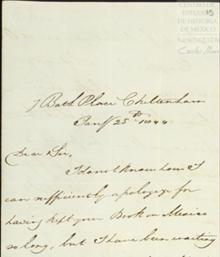 CENTRO DE
ESTUDIOS
DE HISTORIA
DE MEXICO
7 Bath Place Cheltenham
Jany 25th 1844
Dear Sir,
I do not know how I
can sufficiently apologize for
having kept your Book on Mexico
so long, but I have been waiting